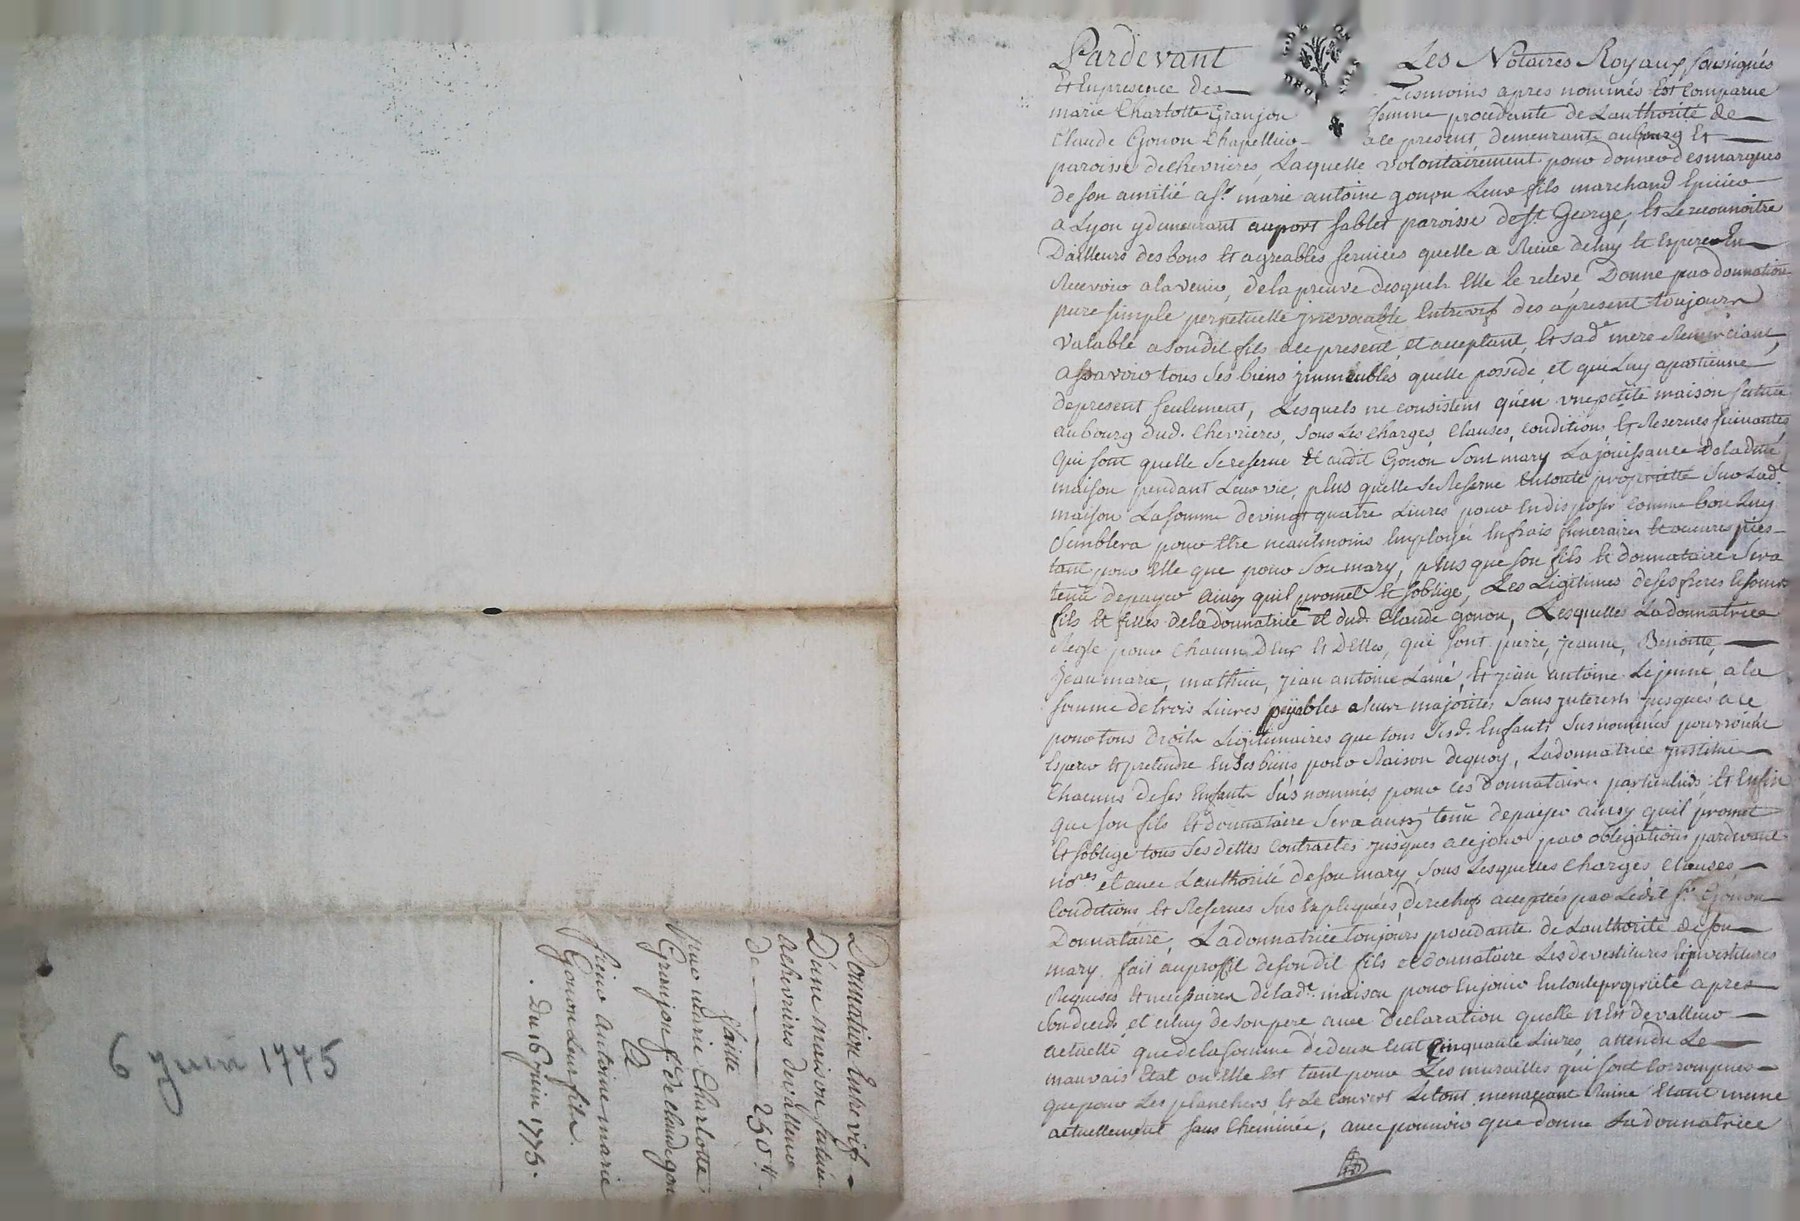 Pardevant Les Notaires Royaux soussignés
Et En presence des Tesmoins apres nommés Est Comparue
marie Charlotte Granjon femme procedante de Lauthorité de
Claude Gonon Chapellier a ce present, demeurante au bourg Et
paroisse de chevrieres, Laquelle volontairement pour donner des marques
de son amitié a Sr. marie antoine gonon Leur fils marchand Epicier
a Lyon y demeurant au port sablet paroisse de St George, Et Le reconnoitre
Dailleurs des bons Et agreables services quelle a Reçue de luy Et Espere En
Recevoir a lavenir, de la preuve desquels Elle le releve, Donne par donnation
pure simple perpetuelle jrrevocable Entrevifs des apresent toujours
Valable a son dit fils a ce present, et acceptant, Et sad.e mere Remerciant,
assavoir tous ses biens jmmeubles quelle possede, et qui Luy apartienne
de present seulement, Lesquels ne consistent qu'en vne petite maison scituée
au bourg dud. Chevrieres, sous Les charges, clauses, conditions, Et Reserves suivantes
Qui sont quelle se reserve Et audit Gonon son mary La jouissance de ladite
maison pendant Leur vie, plus quelle se Reserve En toute proprieté sur Lad.e
maison La somme de vingt quatre Livres pour En disposer comme bon Luy
Semblera pour Etre neantmoins Employée En frais funeraires Et oeuvres pies
tant pour Elle que pour Son mary, plus que son fils Et donnataire Sera
tenu de payer ainsy quil promet Et soblige, Les Legitimes de ses freres Et soeurs
fils Et filles de la donnatrice Et dud. Claude Gonon, Lesquelles La donnatrice
Regle pour chacun D'eux Et D'elles, qui sont pierre, jeanne, Benoitte,
jeanmarie, mathieu, jean antoine Lainé, Et jean antoine Lejeune, a la
somme de trois Livres payables a leurs majorités Sans jnterests jusques a ce
pour tous droits Legitimaires que tous sesd. Enfants Susnommés pourroient
Esperer Et pretendre En ses biens pour Raison de quoy, La donnatrice jnstitue
chacuns de ses Enfants Sus nommés pour ses Donnataires particuliers, Et Enfin
que son fils Et donnataire Sera aussy tenu de payer ainsy quil promet
Et soblige tous ses dettes contractés jusques a ce jour par obligations pardevant
no.res et avec Lauthorité de son mary, sous Lesquelles charges, clauses,
Conditions Et Reserves Sus Expliquées, derechef acceptées par Ledit Sr. Gonon
Donnataire, La donnatrice toujours procedante de Lauthorité de son
mary, fait au proffit de son dit fils et donnataire Les devestitures Et jnvestitures
Requises Et necessaires de lad.e maison pour En jouir En toute proprieté apres
Son deceds, et celuy de son pere, avec declaration quelle n'Est de valleur
actuelle que de la somme de deux Cent Cinquante Livres, attendu Le
mauvais Etat ou Elle Est tant pour Les murailles qui sont corrompues
que pour Les planchers, Et Le couvert Le tout menacant Ruine Etant meme
actuellement sans cheminée, avec pouvoir que donne La donnatrice
Donnation Entrevifs
D'une maison scituée
a chevrieres de valleur
de 250 tt.
faitte
par marie Charlotte
Granjon fe. de claude gonon
A
Sieur antoine marie
Gonon Leur fils.
. Du 6 juin 1775.
6 juin 1775